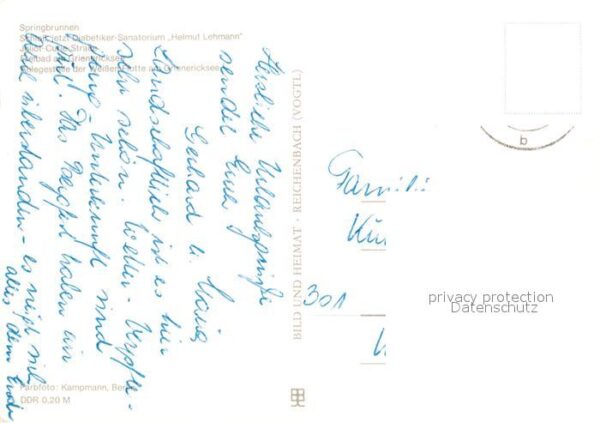 Springbrunnen
Schloß jetzt Diabetiker-Sanatorium „Helmut Lehmann"
Joliot-Curie-Straße
Freibad am Grienericksee
Anlegestelle der Weißen Flotte am Grienericksee
Herzliche Urlaubsgrüße
sendet Euch
Gerhard u. Maria
Landschaftlich ist es hier
sehr schön. Wetter - Verpfle-
gung - Unterkunft sind
gut! Das Bergfest haben wir
alles dem Ende
Farbfoto: Kampmann, Berlin
DDR 0,20 M
BILD UND HEIMAT · REICHENBACH (VOGTL)
b
Familie
301
privacy protection
Datenschutz